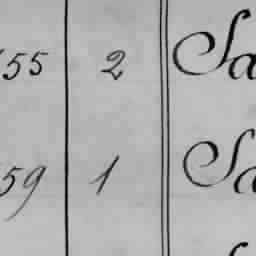 55 2 Sa
59 1 Sa